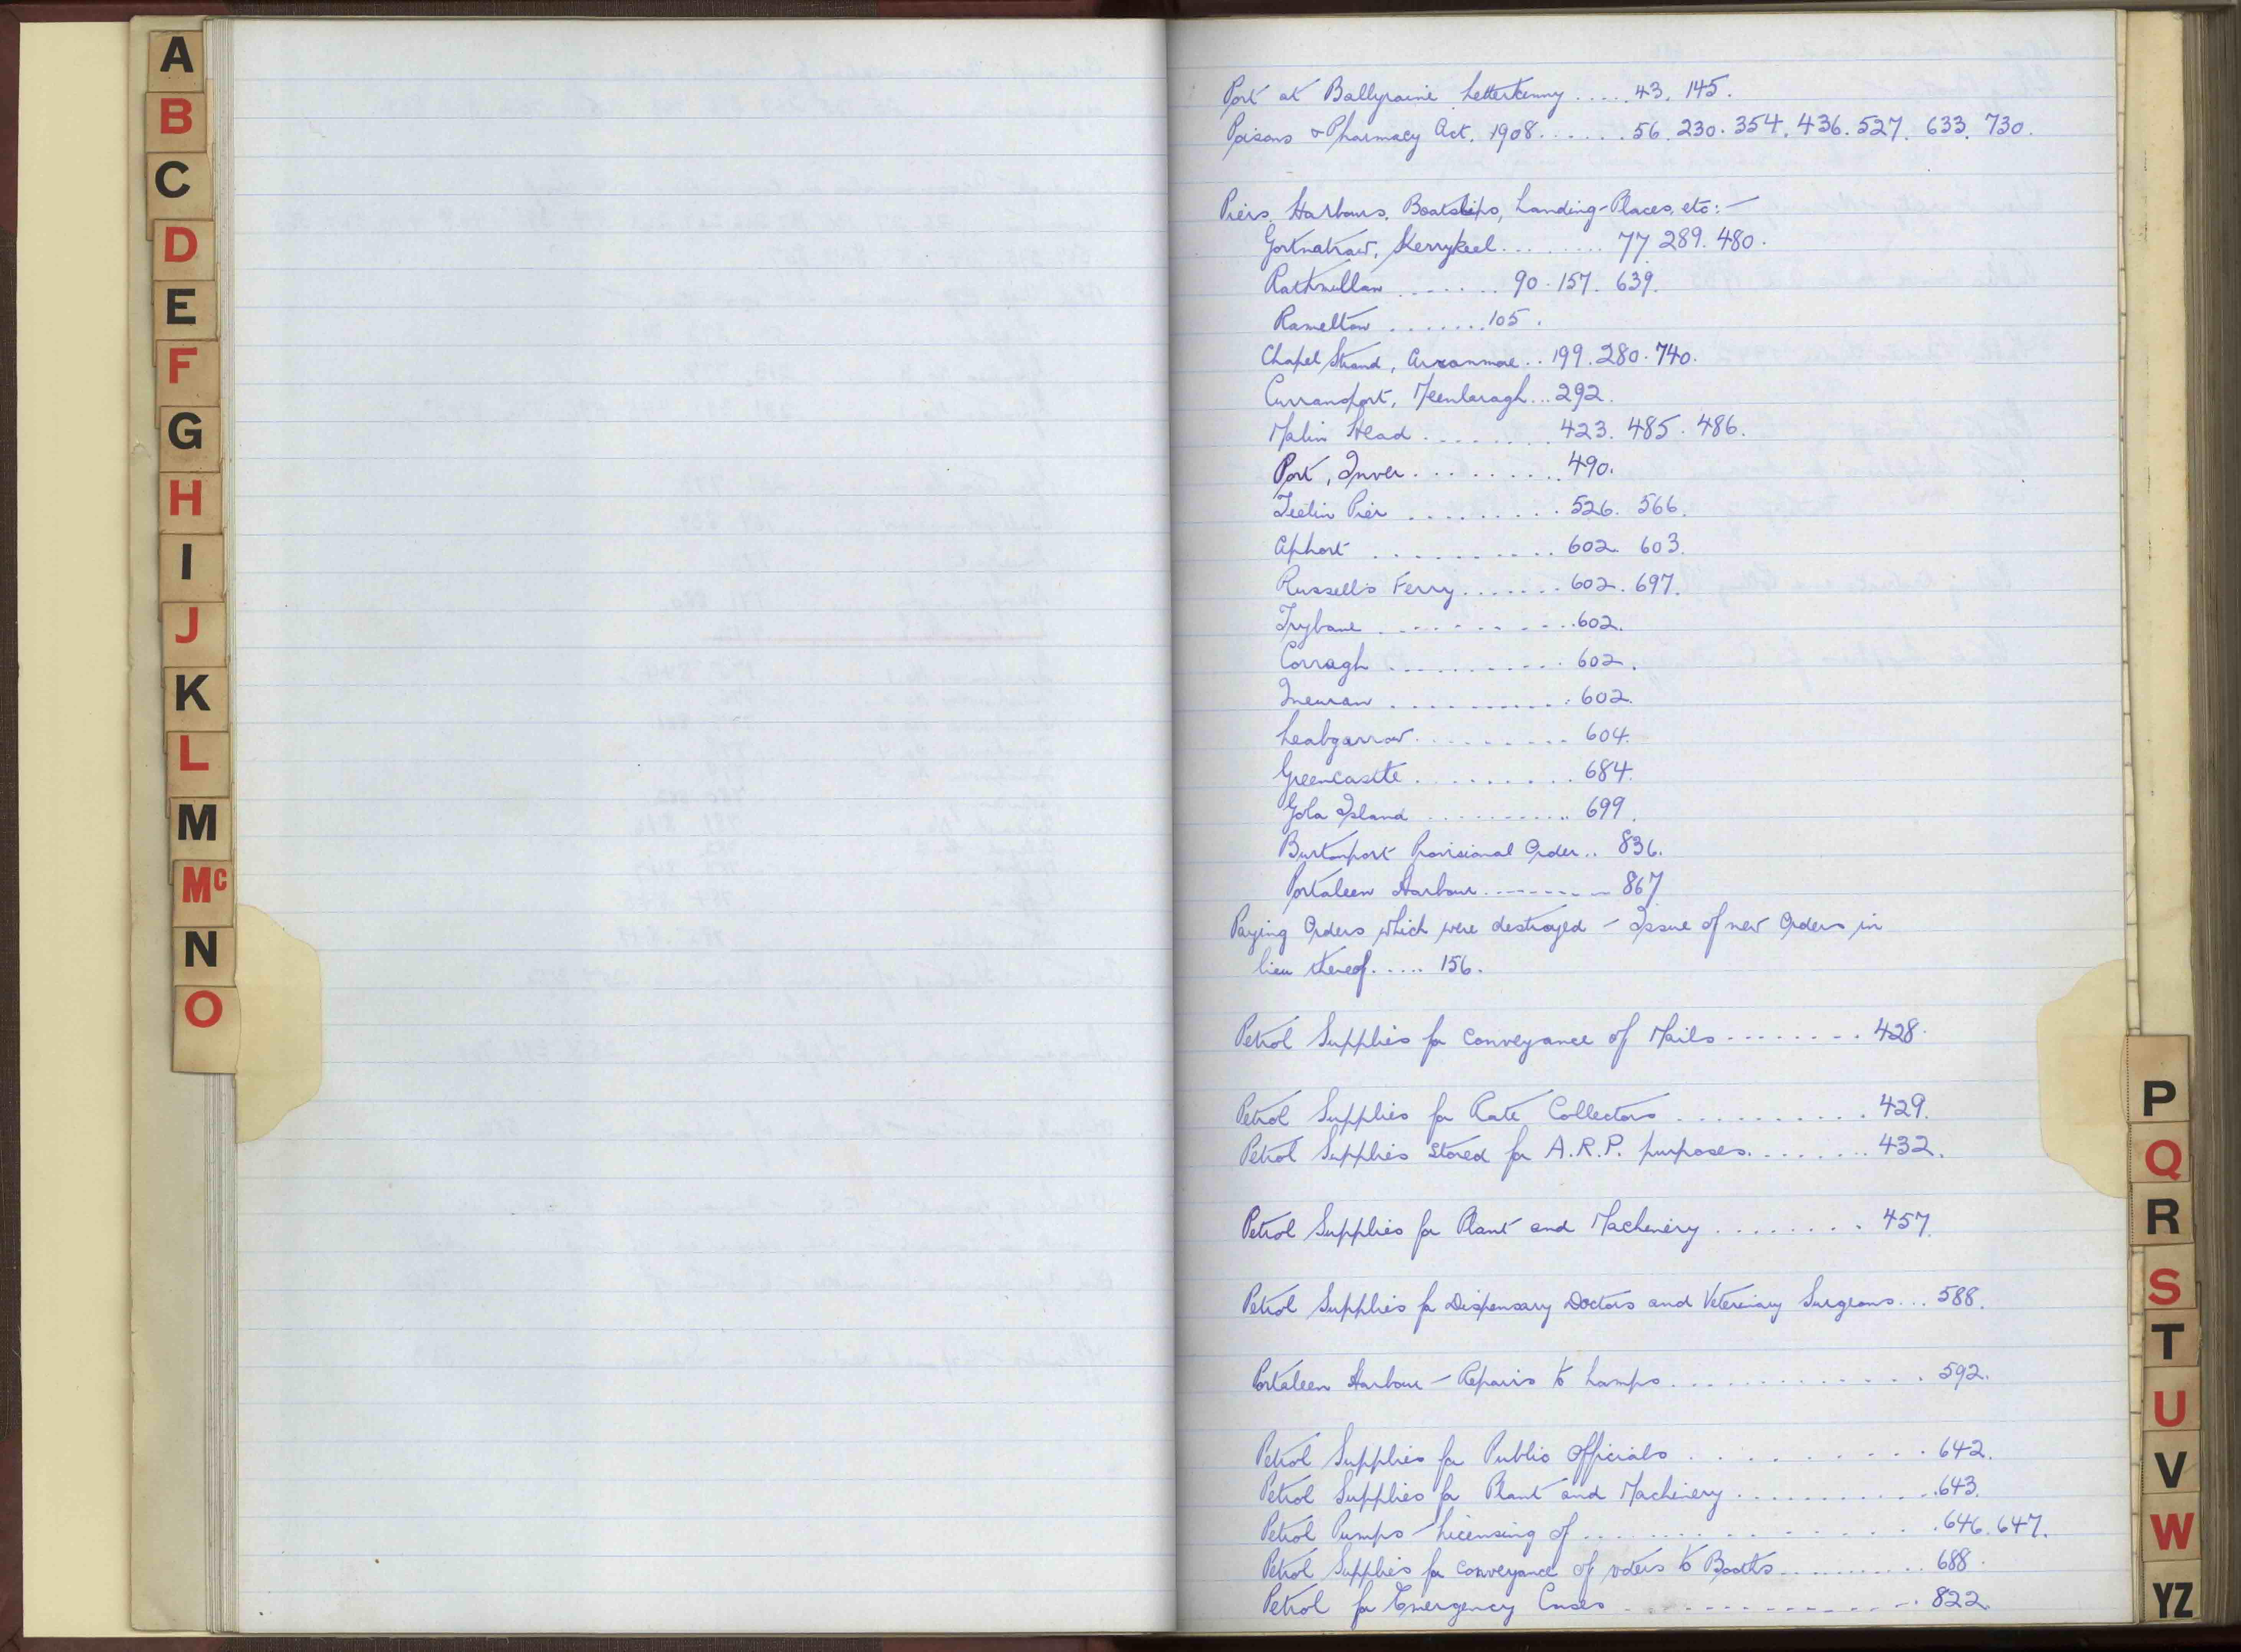 A
B
C
D
E
F
G
H
I
J
K
L
M
Mc
N
O
Port at Ballyraine Letterkenny ..... 43. 145.
Poisons & Pharmacy Act. 1908 ....... 56. 230. 354. 436. 527. 633. 730.
Piers, Harbours, Boatslips, Landing-Places, etc:-
Gortnatraw, Kerrykeel ......... 77. 289. 480.
Rathmullan ....... 90. 157. 639.
Ramelton ....... 105.
Chapel Strand, Arranmore .. 199. 280. 740.
Curransport, Meenlaragh ... 292.
Malin Head ........ 423. 485. 486.
Port, Inver ......... 490.
Teelin Pier ......... 526. 566.
Aphort .......... 602. 603.
Russell's Ferry ....... 602. 697.
Trybane ........... 602.
Corragh ........... 602.
Ineuran .......... 602.
Leabgarrow ......... 604.
Greencastle ......... 684.
Gola Island .......... 699.
Burtonport Provisional Order .. 836.
Portaleen Harbour --------- 867
Paying Orders which were destroyed - Issue of new Orders in
lieu thereof ..... 156.
Petrol Supplies for Conveyance of Mails ........ 428.
Petrol Supplies for Rate Collectors .......... 429.
Petrol Supplies Stored for A.R.P. purposes. ....... 432.
Petrol Supplies for Plant and Machinery ........ 457.
Petrol Supplies for Dispensary Doctors and Veterinary Surgeons ... 588.
Portaleen Harbour - Repairs to Lamps ............. 592.
Petrol Supplies for Public Officials .......... 642.
Petrol Supplies for Plant and Machinery ........... 643.
Petrol Pumps - Licensing of ............... 646. 647.
Petrol Supplies for conveyance of voters to Booths ........... 688.
Petrol for Emergency Cases ............... 822.
P
Q
R
S
T
U
V
W
YZ